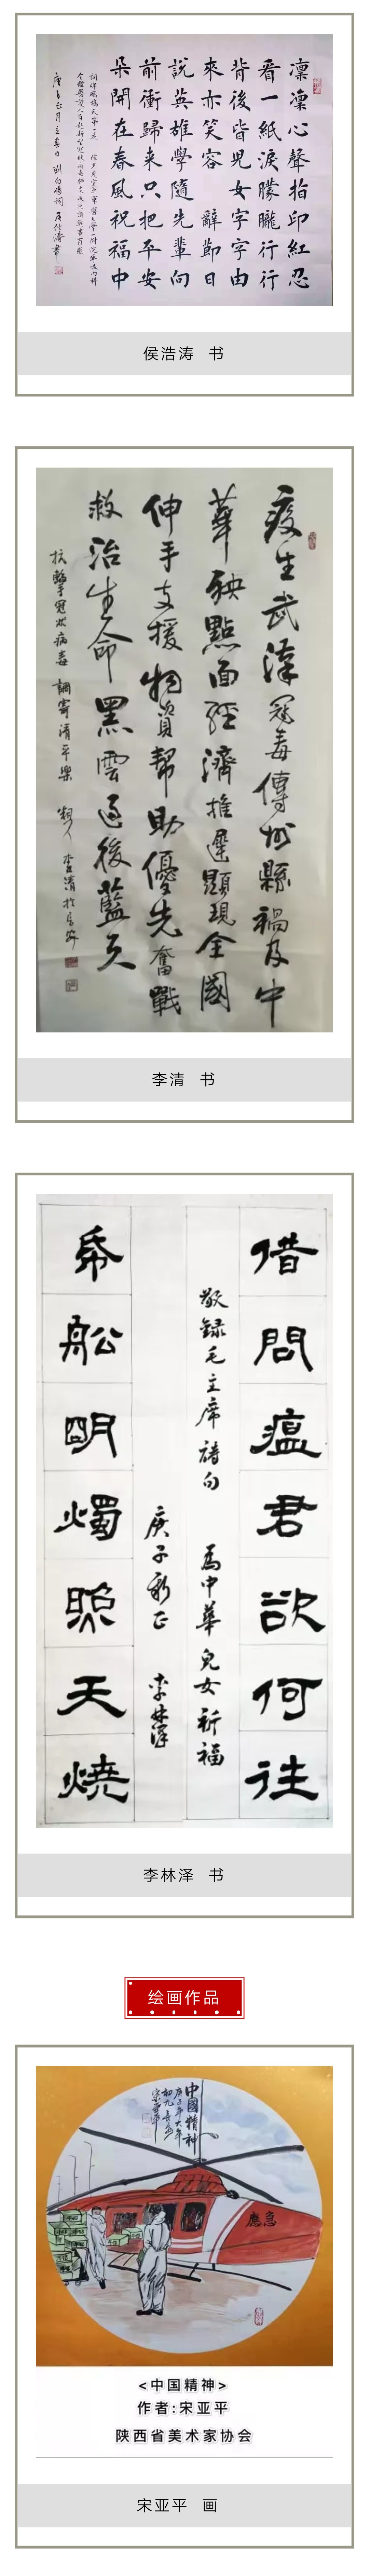 凜凜心聲指印紅忍
看一紙淚朦朧行行
背後皆兒女字字由
來亦笑容 辭節日
說英雄學隨先輩向
前衝歸來只把平安
朵開在春風祝福中
侯浩涛 书
疫生武漢冠毒傳州縣禍及中
華殃點面經濟推遲顯現全國
伸手支援物資幫助優先奮戰
救治生命黑雲過後藍天
抗擊冠狀病毒 調寄清平樂 李清於長安
李清 书
借問瘟君欲何往
敬録毛主席詩句 為中華兒女祈福
庚子新正 李林澤
帋船明燭照天燒
李林泽 书
绘画作品
中國精神
應急
<中国精神>
作者:宋亚平
陕西省美术家协会
宋亚平 画